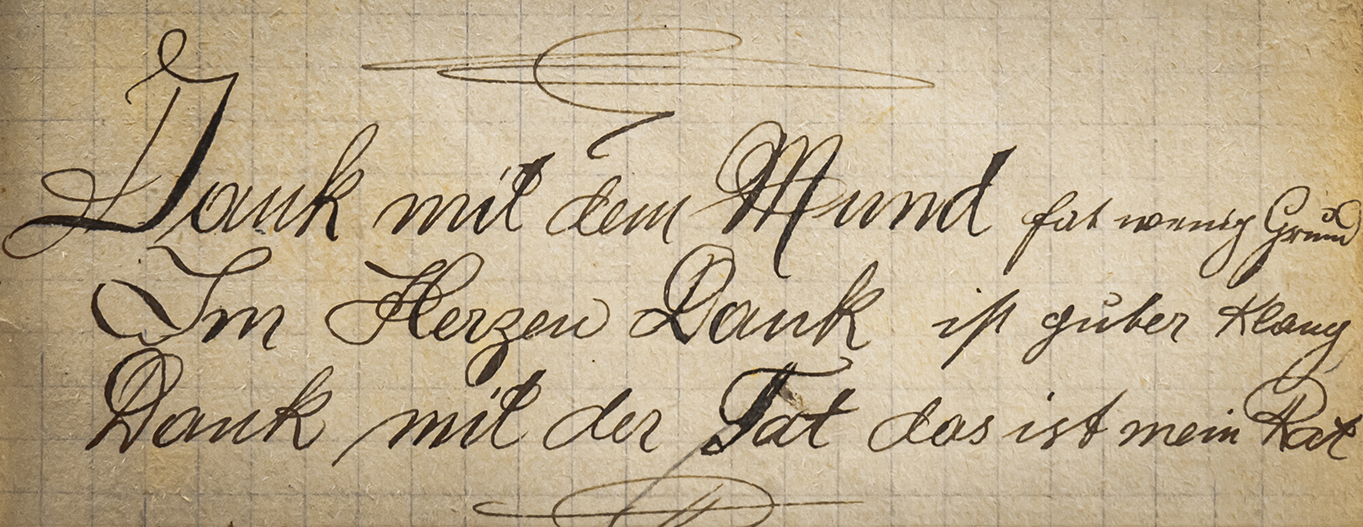 Dank mit dem Mund hat wenig Grund
Im Herzen Dank ist guter Klang
Dank mit der Tat das ist mein Rat